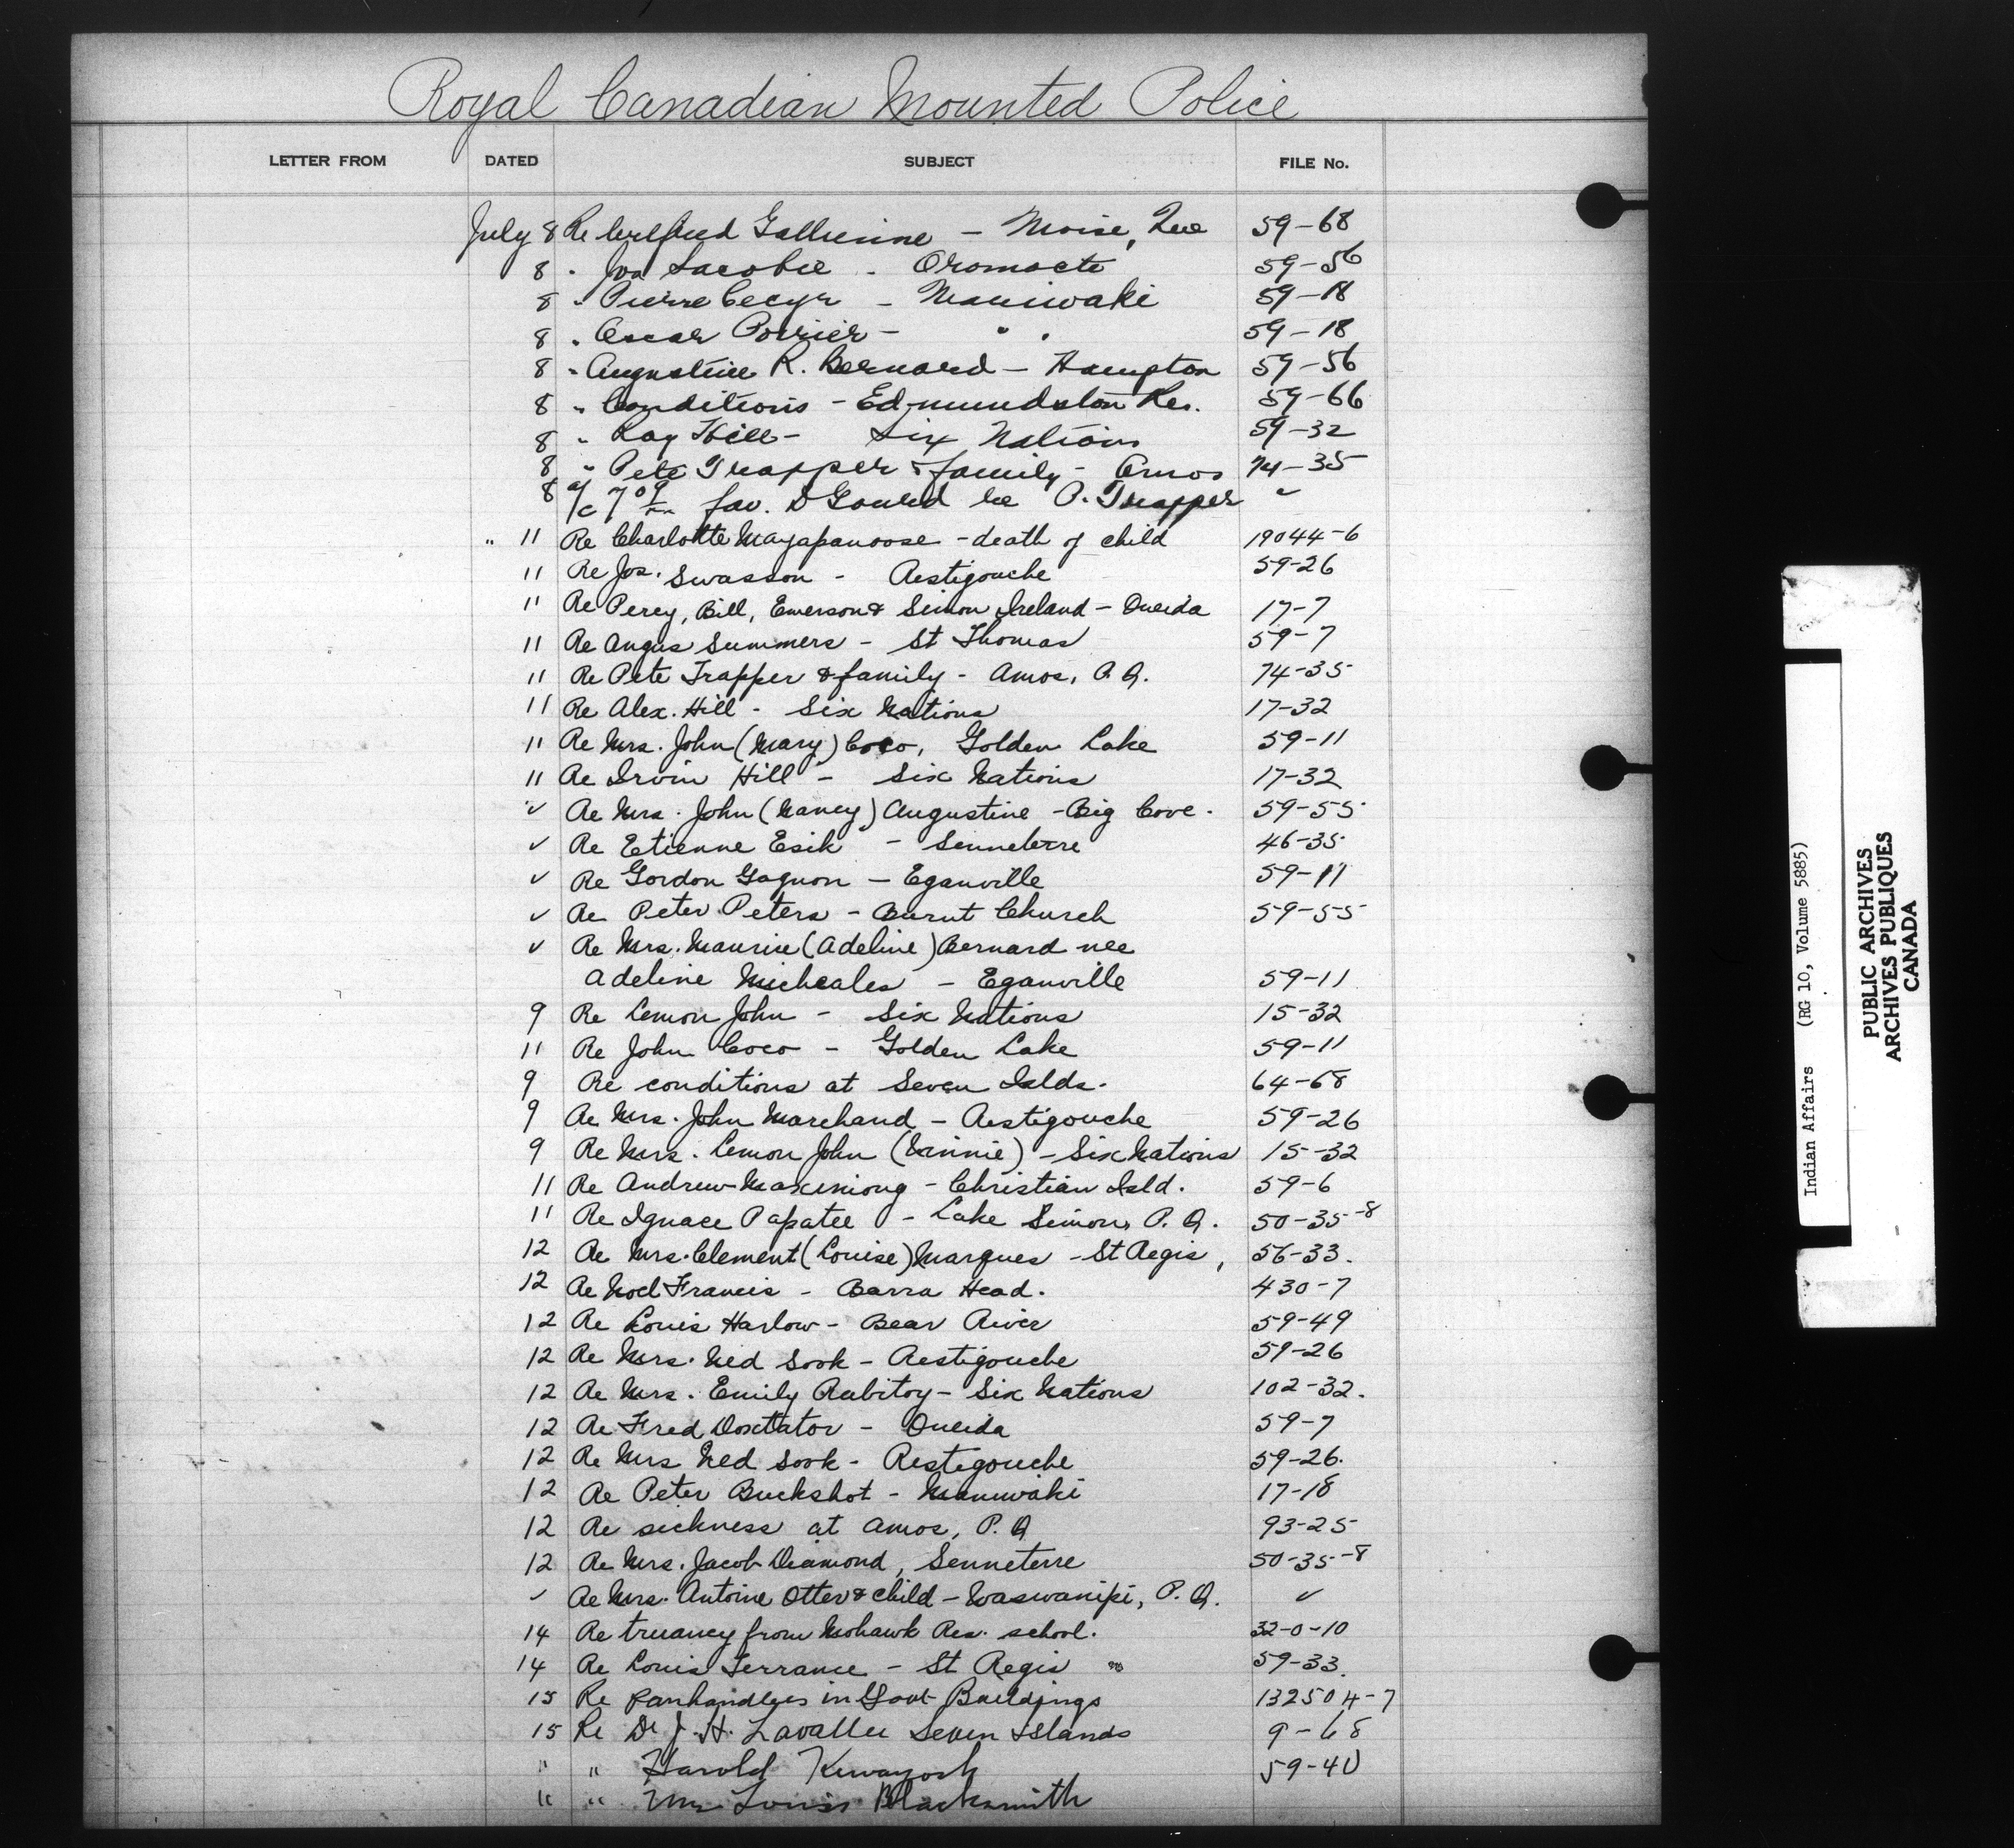 Royal Canadian Mounted Police
LETTER FROM DATED SUBJECT FILE No.
July 8 Re Wilfred - Moise, Que 59-68
8 " Jos Sacobie - Oromocto 59-56
8 " Pierre Cecyr - Maniwaki 59-18
8 " Oscar Poirier - " " 59-18
8 " Augustine R. Bernard - Hampton 59-56
8 " Conditions - Edmundston Res. 59-66
8 " Ray Hill - Six Nations 59-32
8 " Pete Trapper & family - Amos 74-35
8 a/c 7 09 fav. D Gourd re P. Trapper "
" 11 Re Charlotte Mayapanoose - death of child 19044-6
11 Re Jos. Swasson - Restigouche 59-26
11 Re Percy, Bill, Emerson & Simon Ireland - Oneida 17-7
11 Re Angus Summers - St Thomas 59-7
11 Re Pete Trapper & family - Amos, P.Q. 74-35
11 Re Alex. Hill - Six Nations 17-32
11 Re Mrs. John (Mary) Coco, Golden Lake 59-11
11 Re Irvin Hill - Six Nations 17-32
" Re Mrs. John (Nancy) Augustine - Big Cove. 59-55
" Re Etienne Esik - Senneterre 46-35
" Re Gordon Gagnon - Eganville 59-11
" Re Peter Peters - Burnt Church 59-55
" Re Mrs. Maurice (Adeline) Bernard nee
Adeline Micheales - Eganville 59-11
9 Re Lemon John - Six Nations 15-32
11 Re John Coco - Golden Lake 59-11
9 Re conditions at Seven Islds. 64-68
9 Re Mrs. John Marchand - Restigouche 59-26
9 Re Mrs. Lemon John - Six Nations 15-32
11 Re Andrew - Christian Isld. 59-6
11 Re Ignace Papatee - Lake Simon, P.Q. 50-35-8
12 Re Mrs. Clement (Louise) Marques - St Regis, 56-33.
12 Re Noel Francis - Barra Head. 430-7
12 Re Louis Harlow - Bear River 59-49
12 Re Mrs. Ned Sook - Restigouche 59-26
12 Re Mrs. Emily Rubitoy - Six Nations 102-32.
12 Re Fred Doxtator - Oneida 59-7
12 Re Mrs Ned Sook - Restigouche 59-26.
12 Re Peter Buckshot - Maniwaki 17-18
12 Re sickness at Amos, P.Q 93-25
12 Re Mrs. Jacob Diamond, Senneterre 50-35-8
" Re Mrs. Antoine Otter & child - Waswanipi, P.Q. "
14 Re truancy from Mohawk Res. school. 32-0-10
14 Re Louis Terrance - St Regis 59-33.
15 Re panhandlers in Govt Buildings 132504-7
15 Re Dr J. H. Lavallee Seven Islands 9-68
" " Harold Kiwayosh 59-40
" " Mrs Louis Blacksmith
Indian Affairs (RG 10, Volume 5885)
PUBLIC ARCHIVES
ARCHIVES PUBLIQUES
CANADA